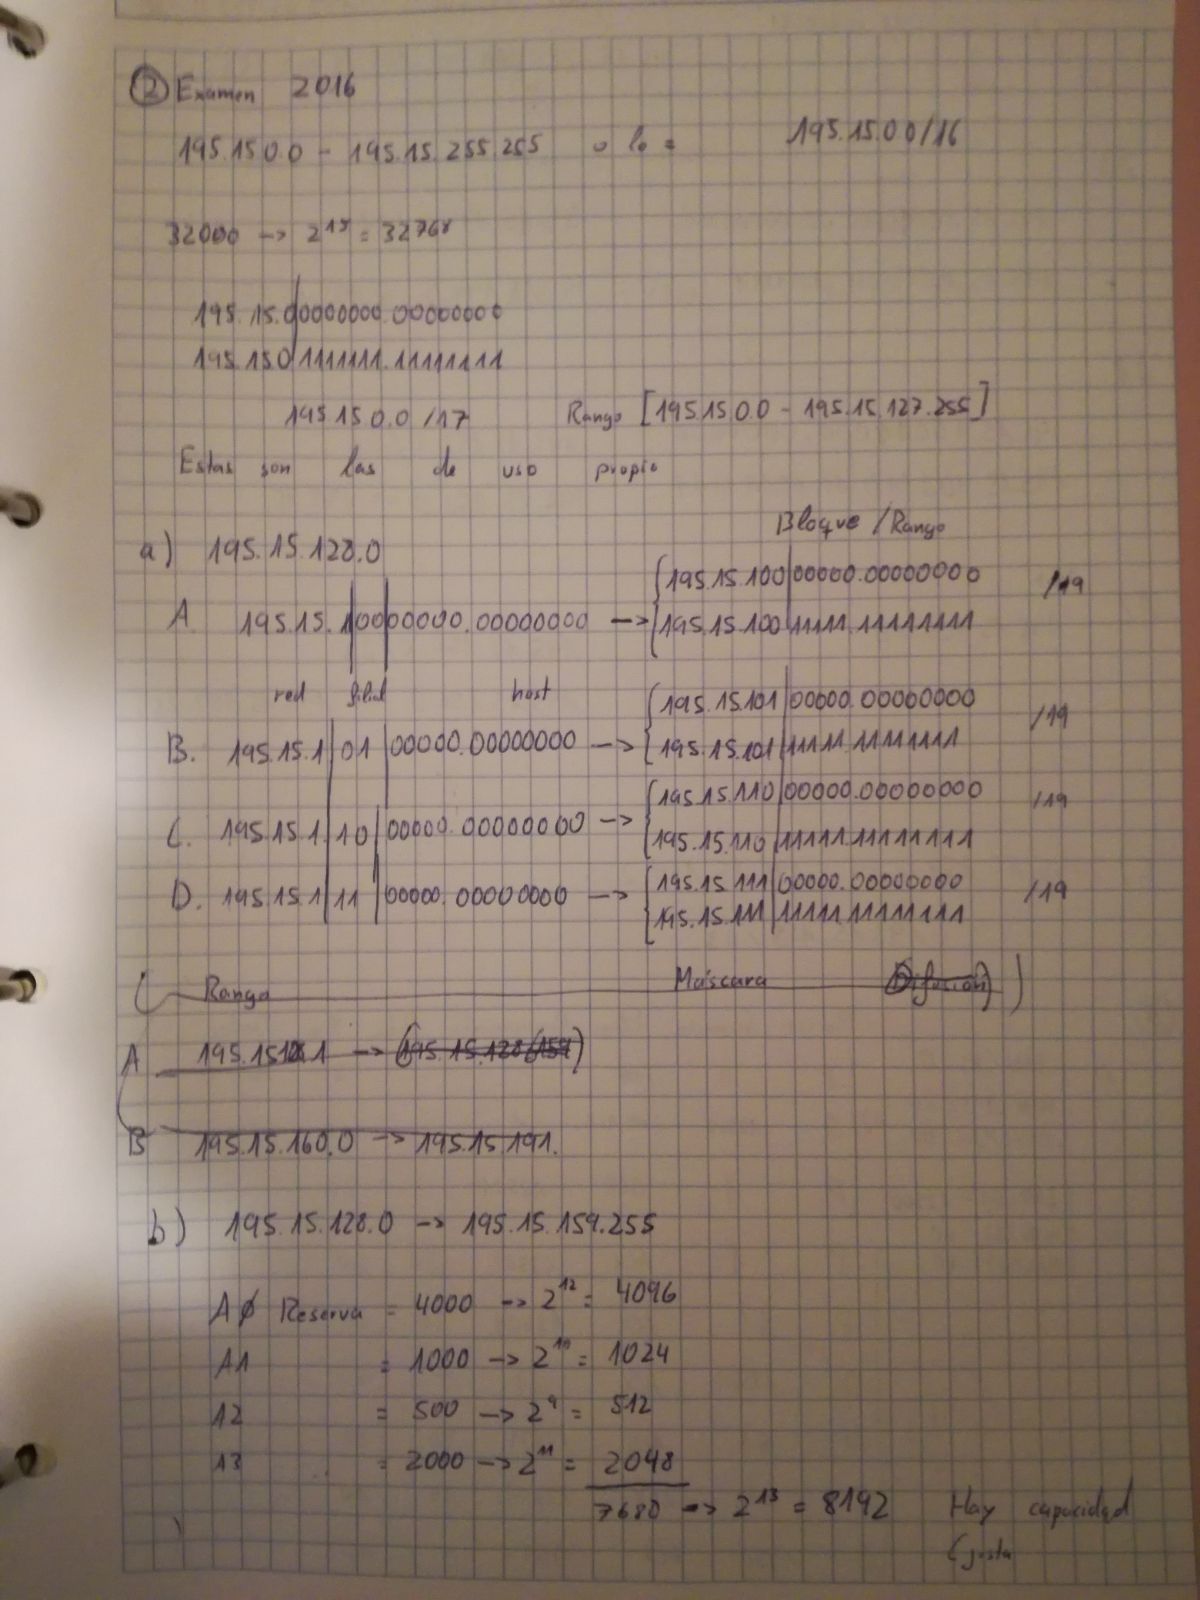 ② Examen 2016
195.15.0.0 - 195.15.255.255 o lo = 195.15.0.0/16
32000 -> 2^15 = 32768
195.15.0|0000000.00000000
195.15.0|1111111.11111111
195.15.0.0 /17 Rango [195.15.0.0 - 195.15.127.255]
Estas son las de uso propio
Bloque / Rango
a) 195.15.128.0
{195.15.100|00000.00000000 /19
A. 195.15.1|00|00000.00000000 -> 195.15.100|11111.11111111
red filial host
{195.15.101|00000.00000000 /19
B. 195.15.1|01|00000.00000000 -> 195.15.101|11111.11111111
{195.15.110|00000.00000000 /19
C. 195.15.1|10|00000.00000000 -> 195.15.110|11111.11111111
{195.15.111|00000.00000000 /19
D. 195.15.1|11|00000.00000000 -> 195.15.111|11111.11111111
( Rango Máscara (Difusión) )
A 195.15.128.1 -> (195.15.128.(159)
B 195.15.160.0 -> 195.15.191.
b) 195.15.128.0 -> 195.15.159.255
A0 Reserva = 4000 -> 2^12 = 4096
A1 = 1000 -> 2^10 = 1024
A2 = 500 -> 2^9 = 512
A3 = 2000 -> 2^11 = 2048
7680 -> 2^13 = 8192 Hay capacidad
(justa